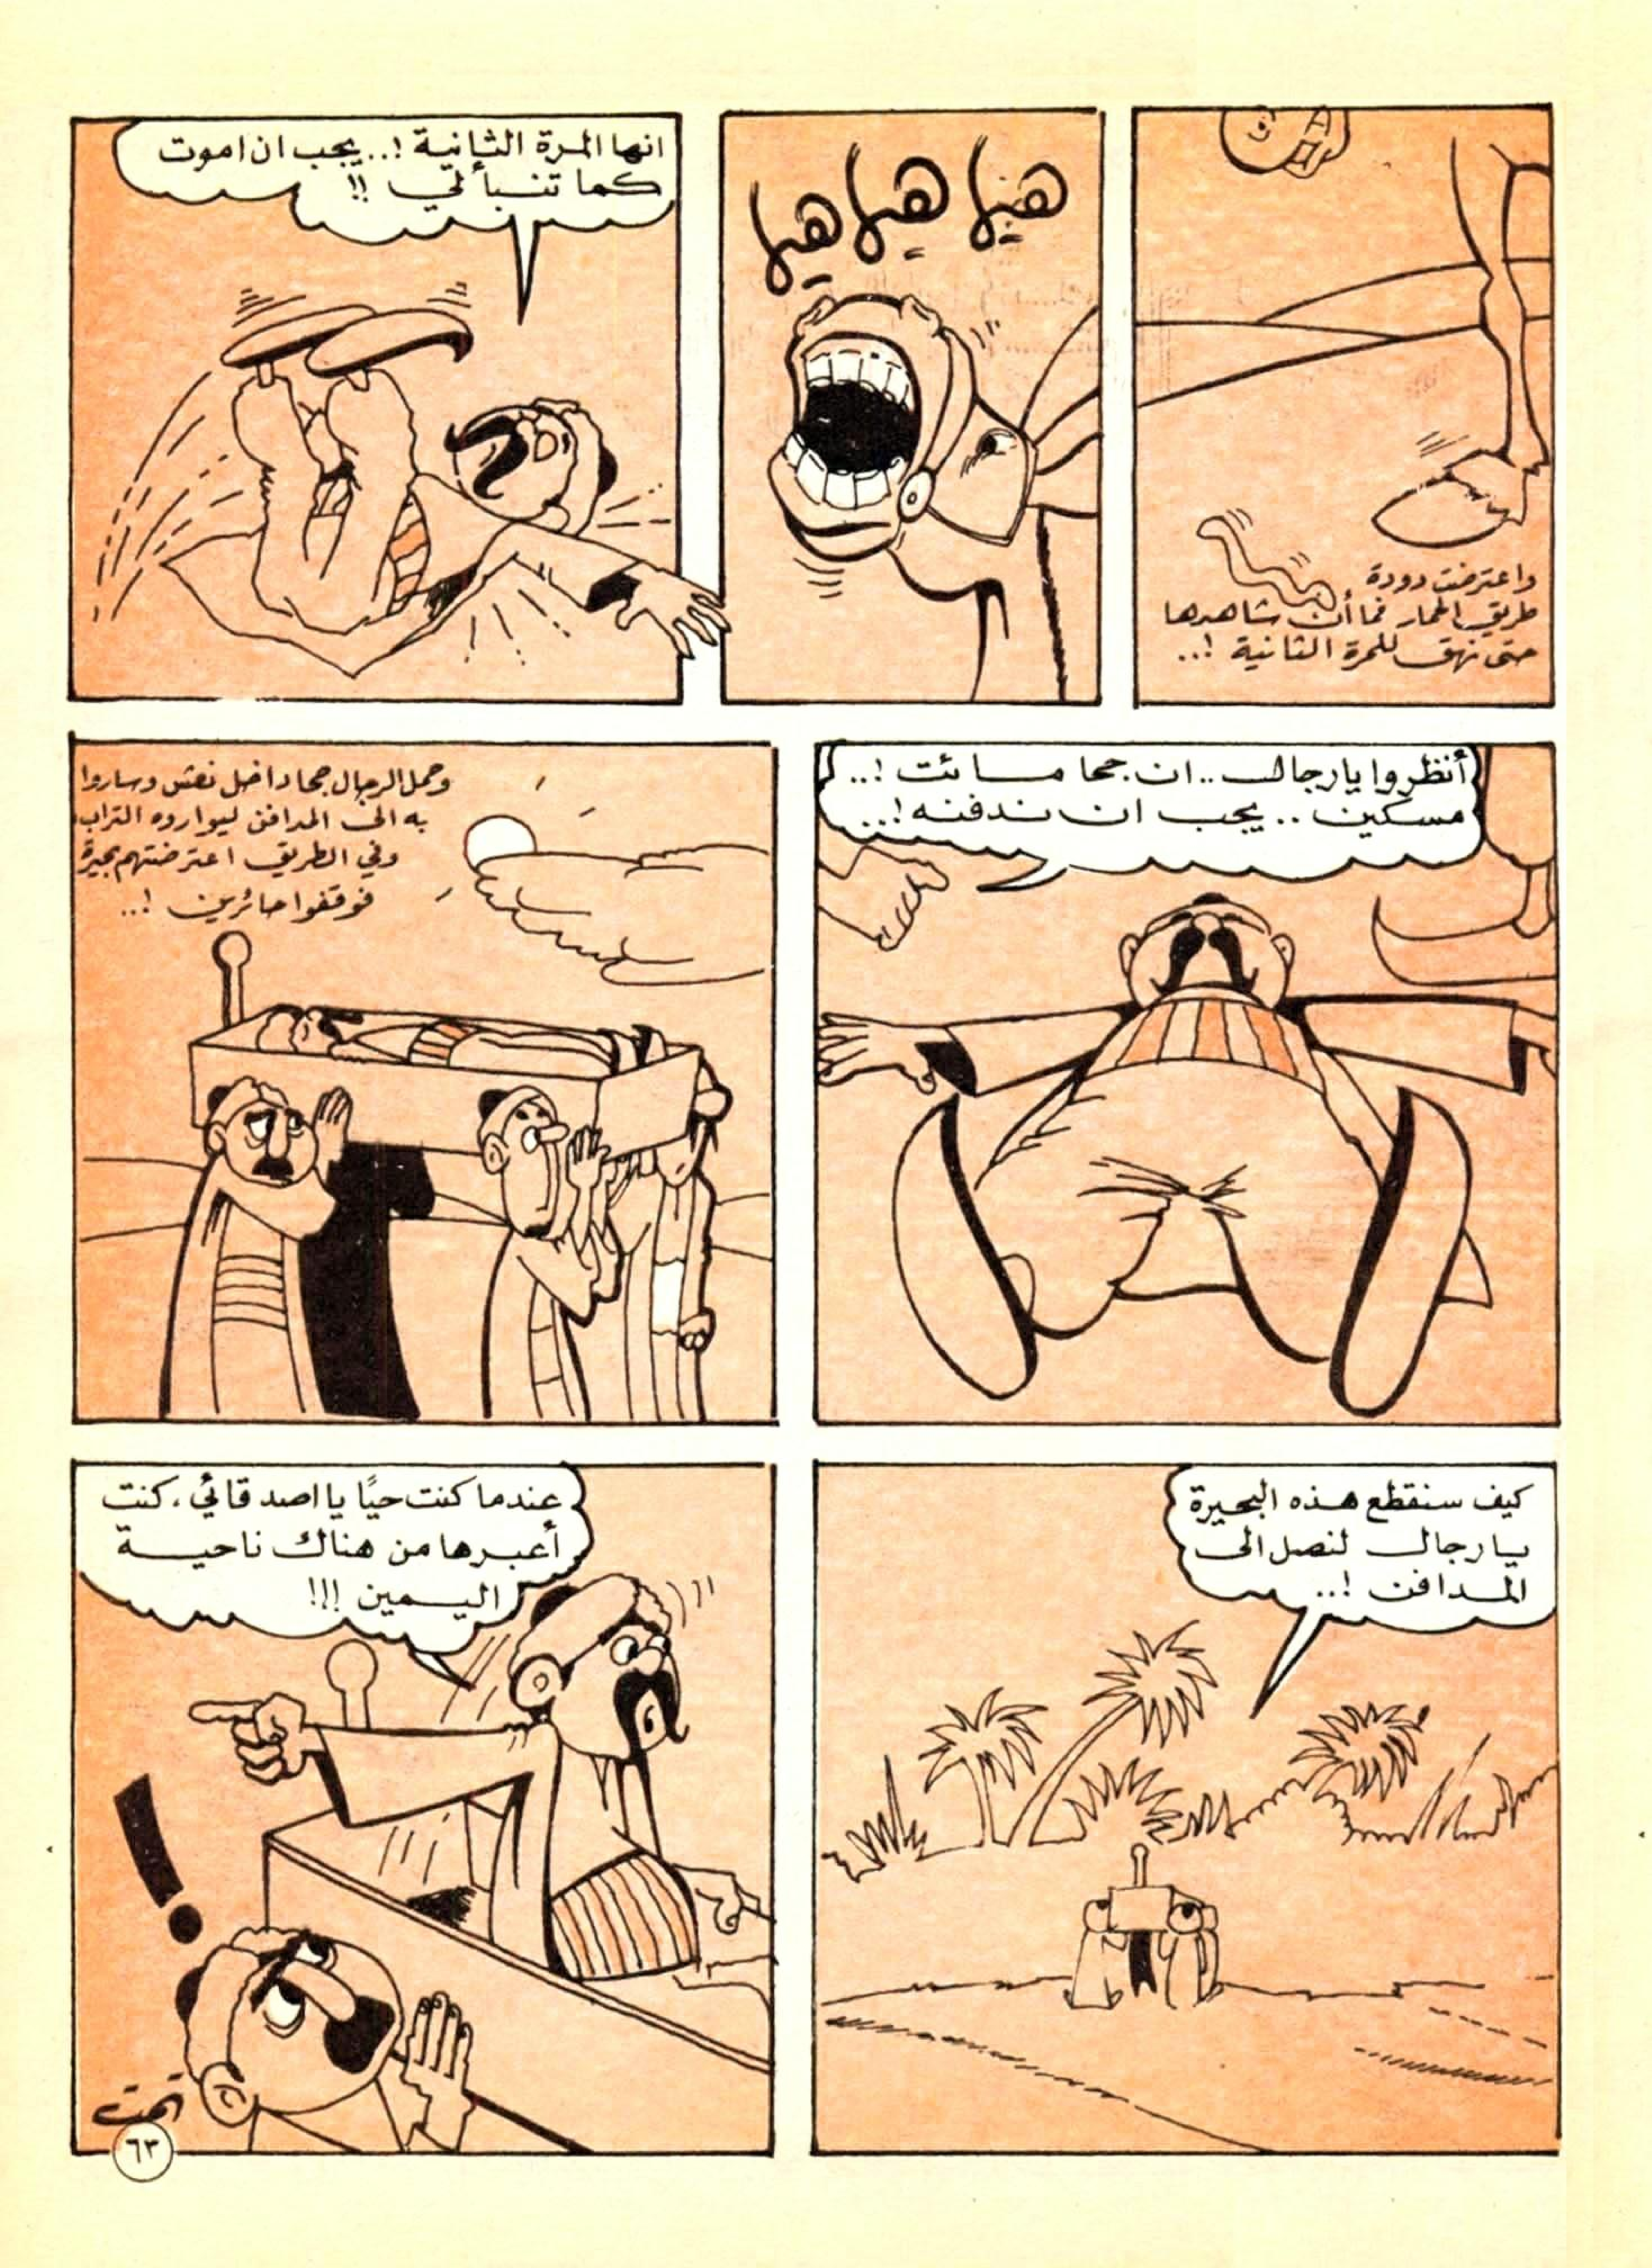 واعترضت دودة
طريق الحمار فما أن شاهدها
حتى نهق للمرة الثانية !..
هيا هيا هيا
انها المرة الثانية !.. يجب ان اموت
كما تنبأ لي !!
أنظروا يا رجال .. ان جحا مائت !..
مسكين .. يجب ان ندفنه !..
وحمل الرجال جحا داخل نعش وساروا
به الى المدافن ليواروه التراب
وفي الطريق اعترضتهم بحيرة
فوقفوا حائرين !..
كيف سنقطع هذه البحيرة
يا رجال لنصل الى
المدافن !..
عندما كنت حيًا يا اصدقائي، كنت
أعبرها من هناك ناحية
اليمين !!!
!
تمت
٦٣